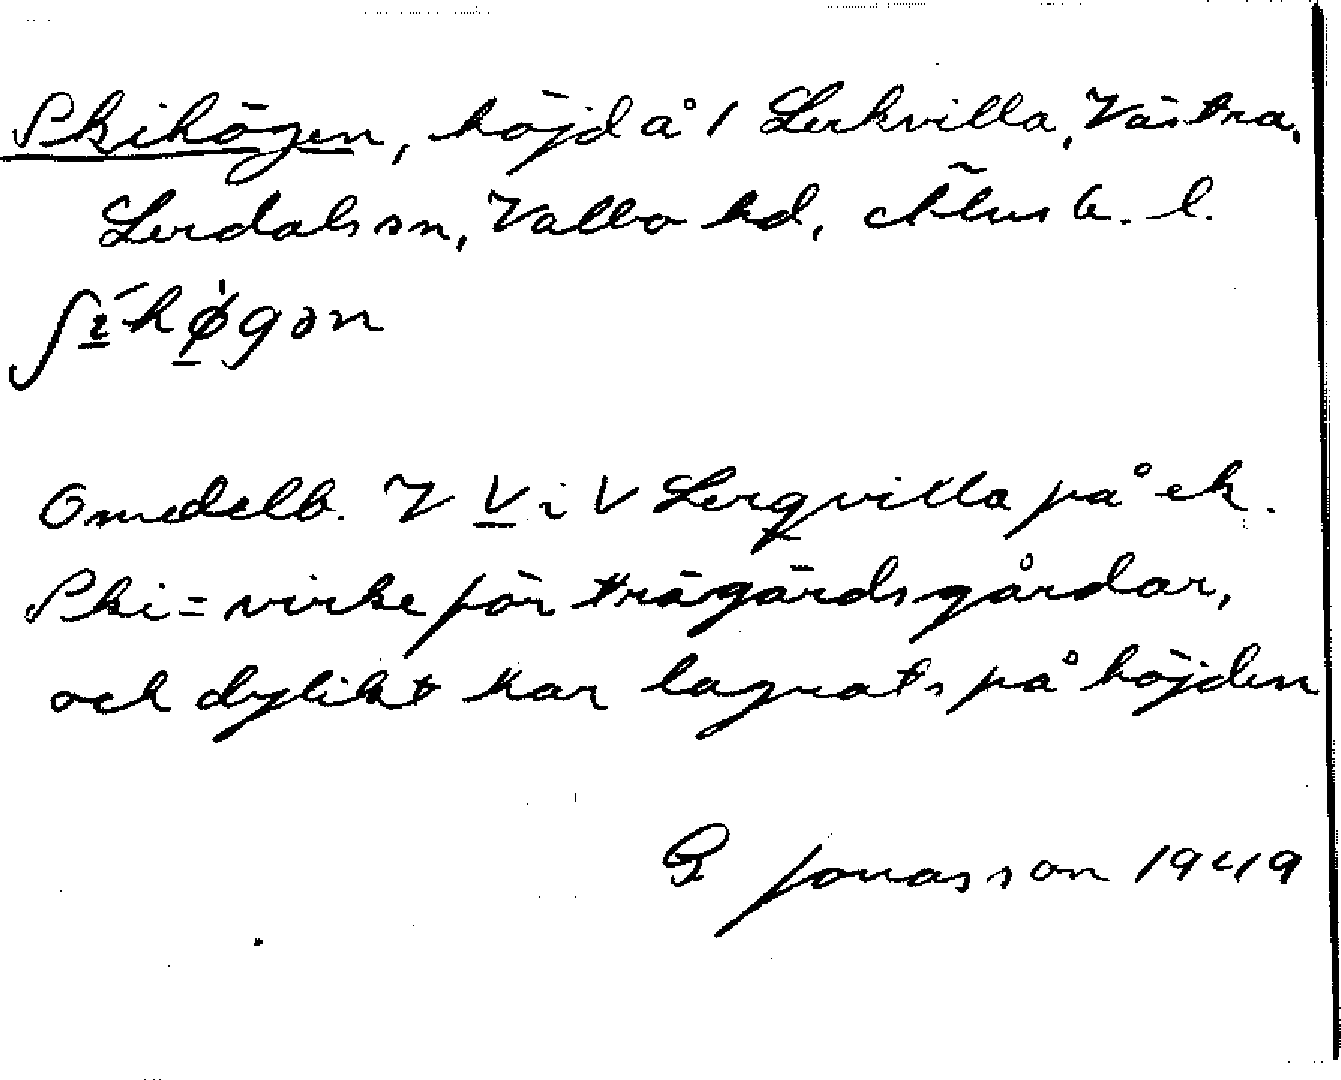 Skihögen, höjd å 1 Lerkvilla, Västra,
Lerdals sn, Valbo hd, Älvsb. l.
ʃɪ́hø̀gən
Omedelb. V V i V Lerqvilla på ek.
Ski = virke för trägärdsgårdar,
och dylikt har lagrats på höjden
G Jonasson 1949